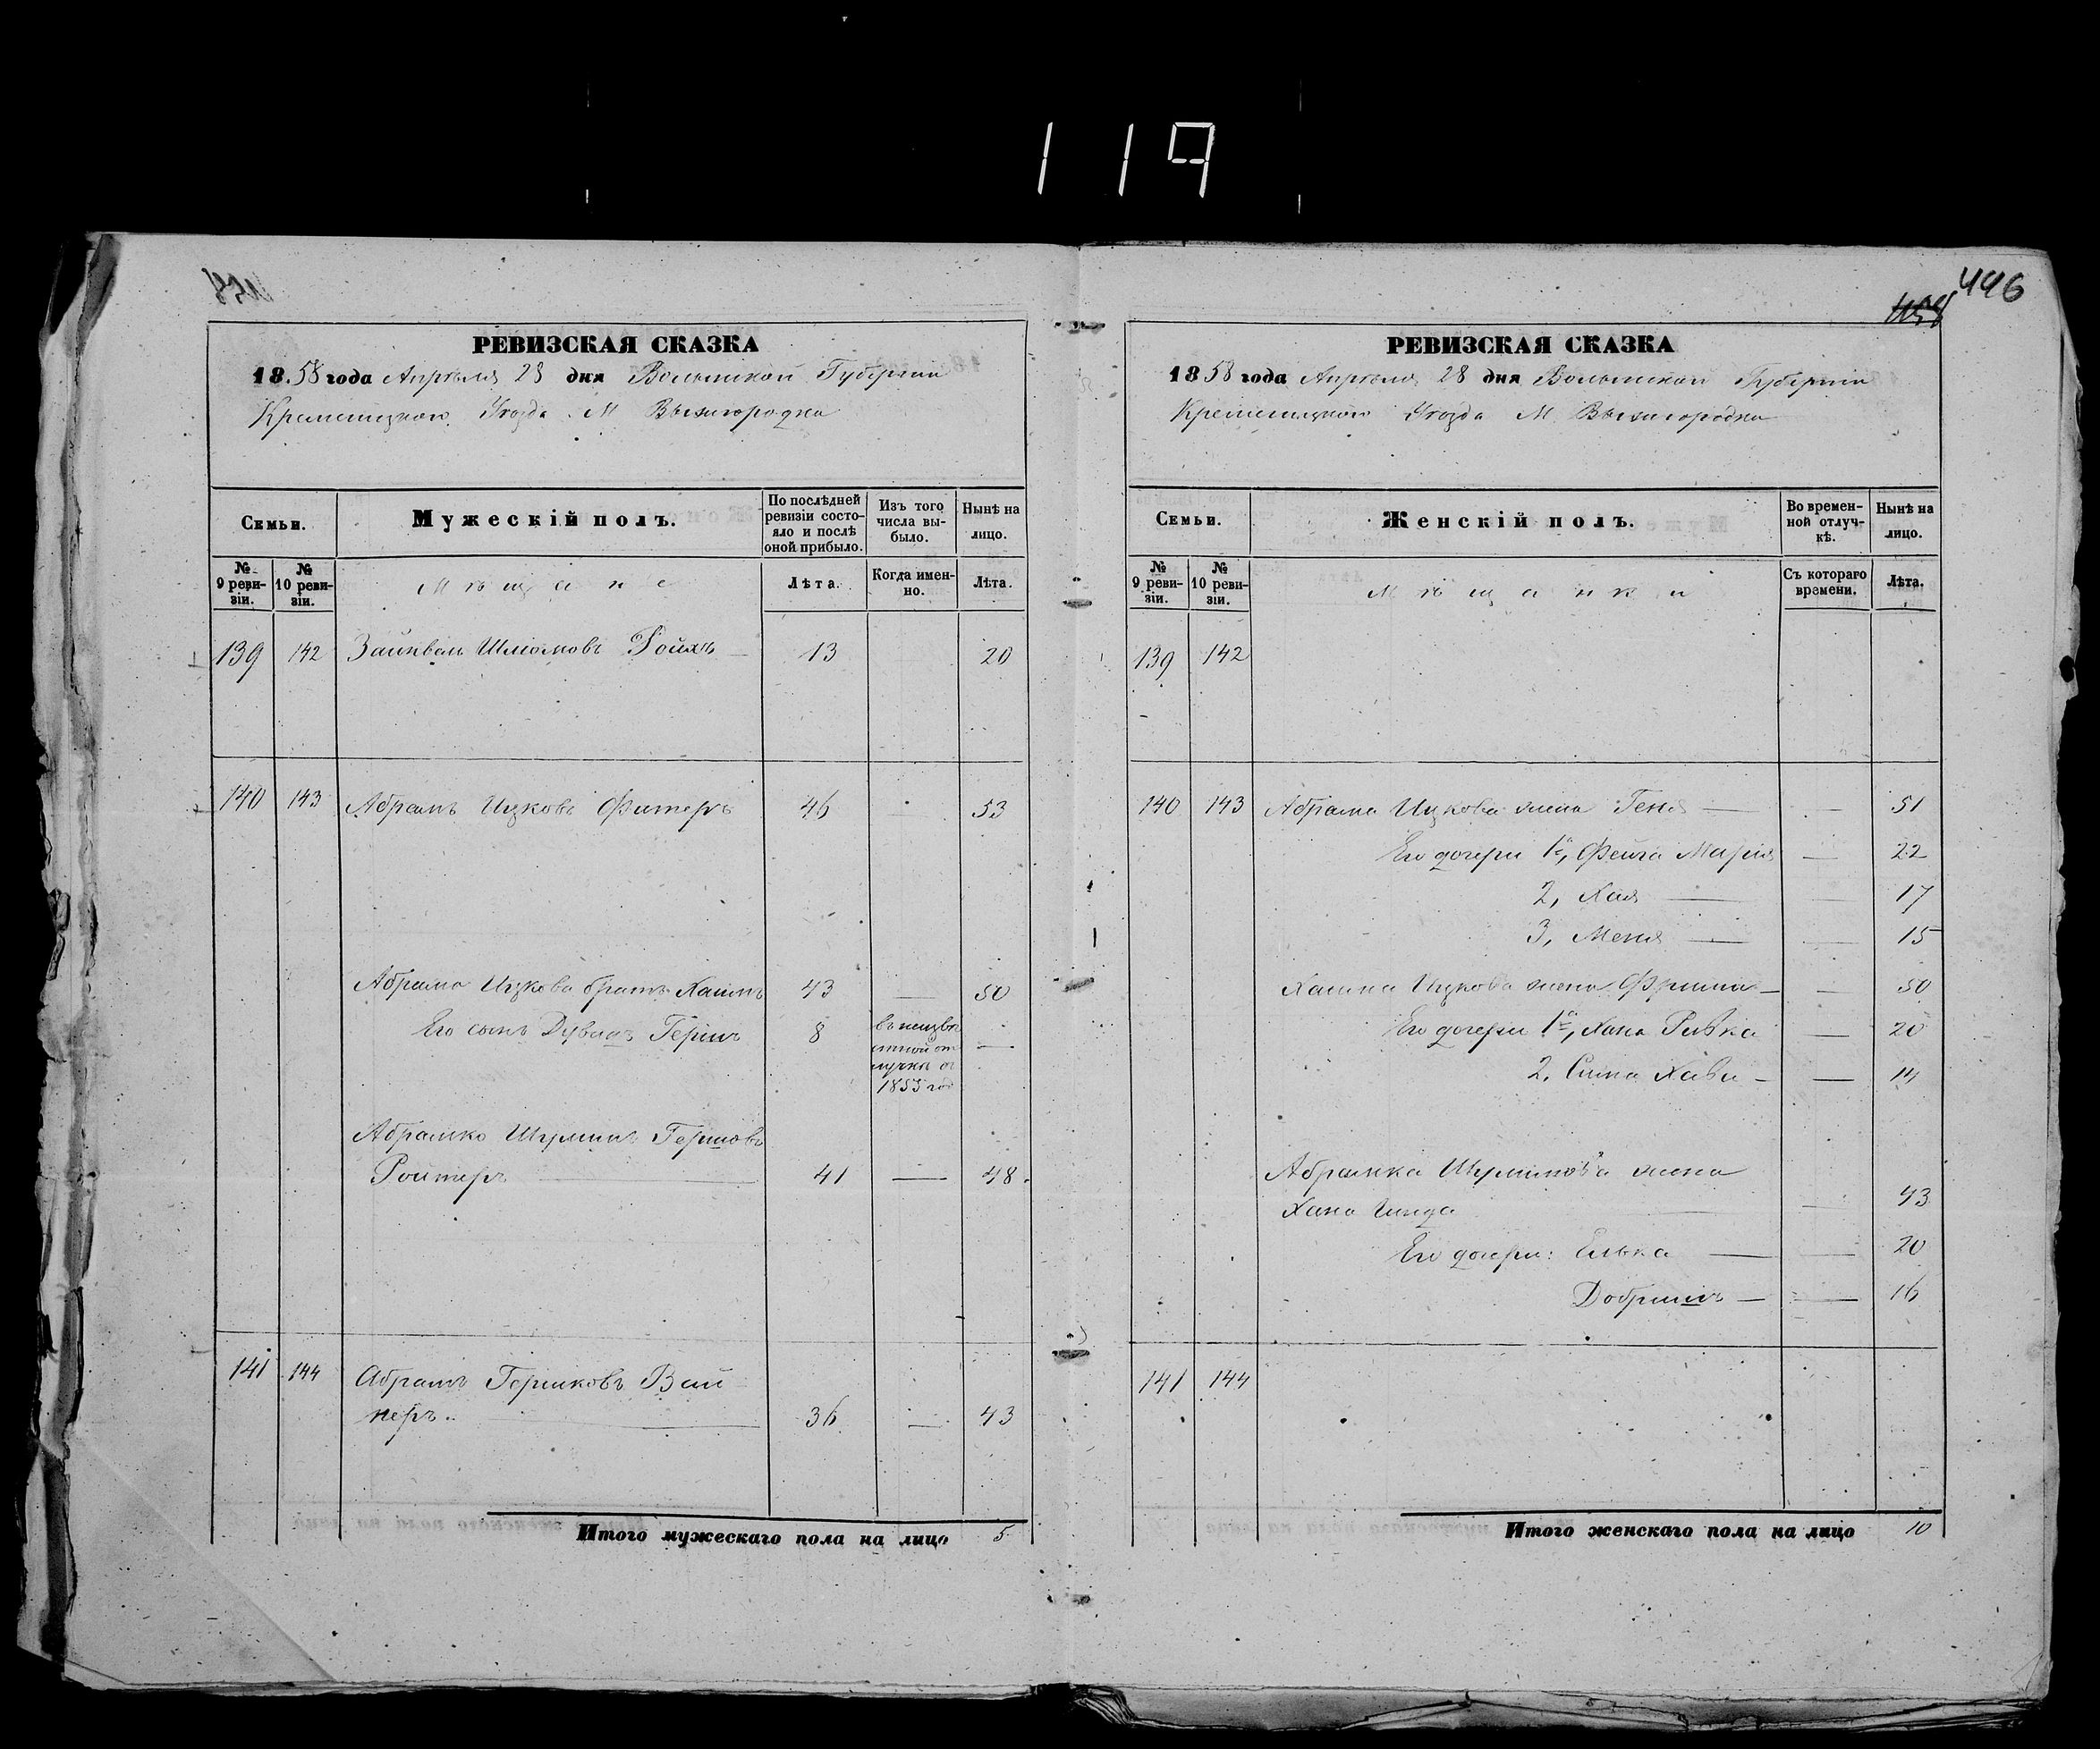 119
446
РЕВИЗСКАЯ СКАЗКА
1858 года Апрѣля 28 дня Волынской Губерніи
Кременецкого Уѣзда М Вышгородка
Семьи.
Мужескій полъ.
По послѣдней ревизіи состояло и послѣ оной прибыло.
Изъ того числа выбыло.
Нынѣ на лицо.
№ 9 ревизіи.
№ 10 ревизіи.
Мѣщане
Лѣта.
Когда именно.
Лѣта.
139 142 Зайнвель Шліомовъ Ройхъ 13 20
140 143 Абрамъ Ицковъ Фитеръ 46 53
Абрама Ицкова братъ Хаимъ 43 — 50
Его сынъ Дувидъ Гершъ 8 въ неизвѣ
стной от —
лучкѣ съ
1853 год
Абрамко Шулимъ Гершовъ
Ройтеръ 41 — 48.
141 144 Абрамъ Гершковъ Вай
неръ. 36 — 43
Итого мужескаго пола на лицо 5
РЕВИЗСКАЯ СКАЗКА
1858 года Апрѣля 28 дня Волынской Губерніи
Кременецкого Уѣзда М. Вышгородка
Семьи.
Женскій полъ.
Во временной отлучкѣ.
Нынѣ на лицо.
№ 9 ревизіи.
№ 10 ревизіи.
Мѣщанки
Съ котораго времени.
Лѣта.
139 142
140 143 Абрама Ицкова жена Геня — — 51
Его дочери 1я, Фейга Марія — 22
2, Хая — — 17
3, Меня — — 15
Хаима Ицкова жена Фрима — — 50
Его дочери 1я, Хана Ривка — 20
2. Сима Хава — — 14
Абрамка Шулимова жена
Хана Гинда — 43
Его дочери: Елька — — 20
Добришъ — — 16
141 144
Итого женскаго пола на лицо 10